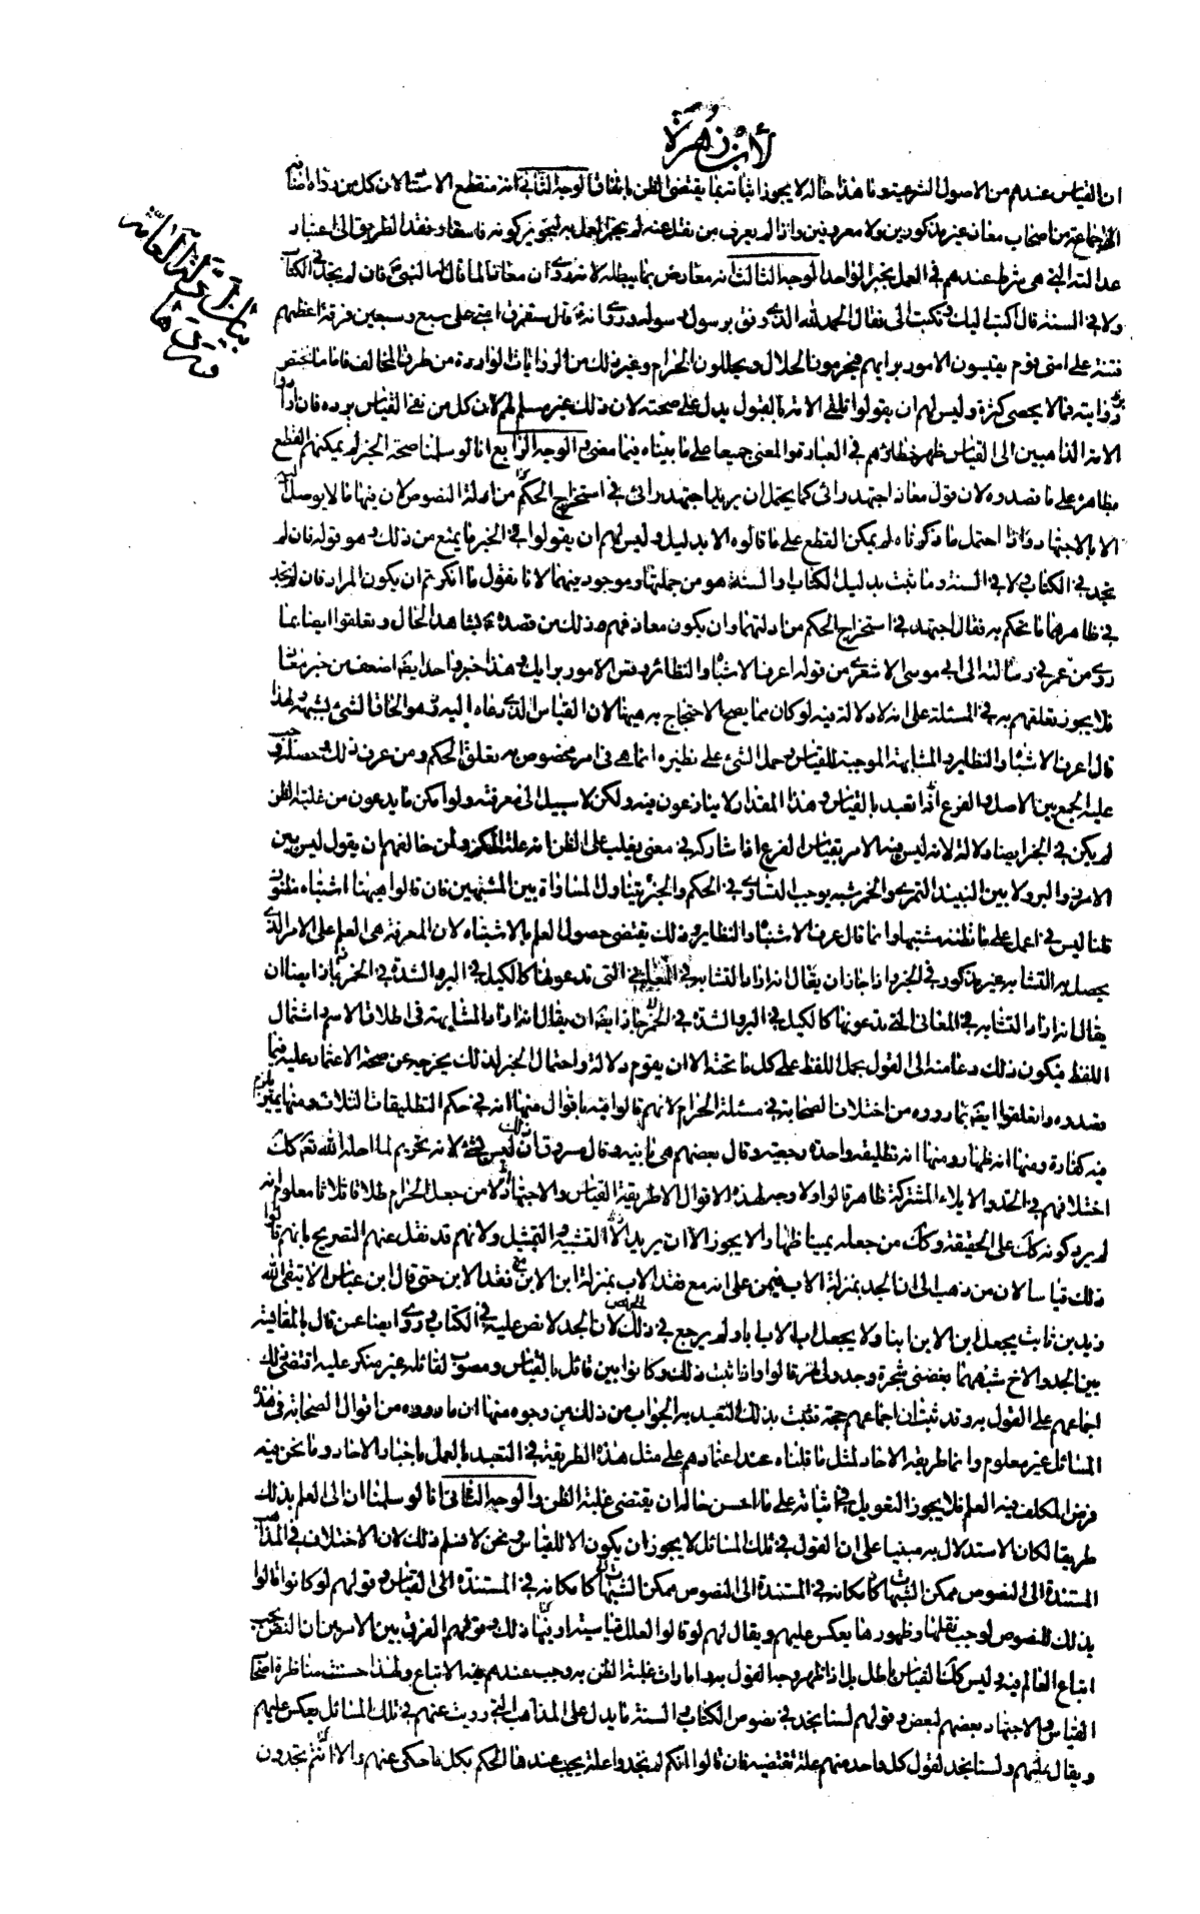 لابن زهرة
ان القياس عندهم من الاصول الشرعية وما هذا حاله لا يجوز اثباته بما يقتضى الظن باتفاق الوجه الثانى انه منقطع الاسناد لان كل من رواه اضافه
الى جماعة من اصحاب معاذ غير مذكورين ولا معروفين واذا لم يعرف من نقل عنه لم يجز العمل به لتجويز كونه فاسقا وفقد الطريق الى اعتبار
عدالته التى هى شرط عندهم فى العمل بخبر الواحد الوجه الثالث انه معارض بما يبطله لانه روى ان معاذا لما قال له النبى فان لم تجد فى الكتاب
ولا فى السنة قال اكتب اليك وتكتب الى فقال الحمد لله الذى وفق رسول رسوله وروى انه قال ستفترق امتى على سبع وسبعين فرقة اعظمهم
فتنة على امتى قوم يقيسون الامور برأيهم فيحرمون الحلال ويحللون الحرام وغير ذلك من الروايات الواردة من طرق المخالف فاما ما تختص
بروايته فما لا يحصى كثرة وليس لهم ان يقولوا تلقى الامة بالقبول يدل على صحته لان ذلك غير مسلم لهم لان كل من نفى القياس يرده فان ارادوا
الامة الذاهبين الى القياس ظهر خطاؤهم فى العبارة والمعنى جميعا على ما بيناه فيما مضى والوجه الرابع انا لو سلمنا صحة الخبر لم يمكنهم القطع
بظاهره على ما قصدوه لان قول معاذ اجتهد رائى كما يحتمل ان يريد اجتهد رائى فى استخراج الحكم من ادلة النصوص لان فيها ما لا يوصل اليه
الا بالاجتهاد واذا احتمل ما ذكرناه لم يمكن القطع على ما قالوه الا بدليل وليس لهم ان يقولوا فى الخبر ما يمنع من ذلك وهو قوله فان لم
تجد فى الكتاب ولا فى السنة وما ثبت بدليل الكتاب والسنة هو من جملتها وموجود فيهما لانا نقول ما انكرتم ان يكون المراد فان لم تجد
فى ظاهرهما ما تحكم به فقال اجتهد فى استخراج الحكم من ادلتهما وان يكون معاذ فهم ذلك من قصده بشاهد الحال وتعلقوا ايضا بما
روى من عمر فى رسالته الى ابى موسى الاشعرى من قوله اعرف الاشباه والنظائر وقس الامور برايك وهذا خبر واحد ايضا اضعف من خبر معاذ
فلا يجوز تعلقهم به فى المسئلة على انه لا دلالة فيه لو كان مما يصح الاحتجاج به فيها لان القياس الذى دعاه اليه هو الحاق الشىء بشبهه لهذا
قال اعرف الاشباه والنظاير والمشابهة الموجبة للقياس وحمل الشئ على نظيره انما هى فى امر مخصوص به تعلق الحكم ومن عرف ذلك وحصله وجب
عليه الجمع بين الاصل والفرع اذا تعبد بالقياس وهذا المقدار لا ينازعون فيه ولكن لا سبيل الى معرفته ولو امكن ما يدعون من غلبة الظن
لم يكن فى الخبر ايضا دلالة لانه ليس فيه الامر بقياس الفرع اذا شاركه فى معنى يغلب على الظن انه علة الحكم ولمن خالفهم ان يقول ليس بين
الارز والبر ولا بين النبيذ التمرى والخمر شبه يوجب التساوى فى الحكم والخبر يتناول المساواة بين المشتبهين فان قالوا ههنا اشتباه مظنون
قلنا ليس فى اعمل على ما تظنه مشتبها وانما قال عرف الاشباه والنظاير وذلك يقتضى حصول العلم بالاشتباه لان المعرفة هى العلم على الامر الذى
يحصل به التشابه غير مذكور فى الخبر واذا جاز ان يقال انه اراد التشابه فى المعانى التى تدعونها كالكيل فى البر والشدة فى الخمر جاز ايضا ان
يقال انه اراد التشابه فى المعانى التى تدعونها كالكيل فى البر والشدة فى الخمر جاز ايضا ان يقال انه اراد المشابهة فى اطلاق الاسم واشتمال
اللفظ فيكون ذلك دعا منه الى القول بحمل اللفظ على كل ما تحته الا ان يقوم دلالة واحتمال الخبر لذلك يخرجه عن صحة الاعتماد عليه فيما
قصدوه وتعلقوا ايضا بما رووه من اختلاف الصحابة فى مسئلة الحرام لانهم قالوا فيه باقوال منها انه فى حكم التطليقات الثلاث ومنها يمين يلزم
فيه كفارة ومنها انه ظهار ومنها انه تطليقة واحدة رجعية وقال بعضهم هى باينه وقال مسروق ان ليس بشئ لانه تحريم لما احله الله تعم كك
اختلافهم فى الجد والايلاء المشتركة ظاهر قالوا ولا وجه لهذه الاقوال الا طريقة القياس والاجتهاد لان من جعل الحرام طلاقا ثلاثا معلوم انه
لم يرد كونه كك على الحقيقة وكك من جعله يمينا وظهارا ولا يجوز الا ان يريد الا التشبيه والتمثيل ولانهم قد نقل عنهم التصريح بانهم قالوا
ذلك قياسا لان من ذهب الى ان الجد بمنزلة الاب فيمن على انه مع فقد الاب بمنزلة ابن الابن مع فقد الابن حتى قال ابن عباس الا يتقى الله
زيد بن ثابت يجعل ابن الابن ابنا ولا يجعل اب الاب ابا ولم يرجع فى ذلك الى نص لان الجد لا نص عليه فى الكتاب وروى ايضا عمن قال بالمقاسمة
بين الجد والاخ شبههما بغصنى شجرة وجدولى نهر قالوا واذا ثبت ذلك وكانوا بين قائل بالقياس ومصوب لقائله غير منكر عليه اقتضى ذلك
اجماعهم على القول به وقد ثبت ان اجماعهم حجة فثبت بذلك التعبد به الجواب من ذلك من وجوه منها ان ما رووه من اقوال الصحابة فى هذه
المسائل غير معلوم وانما طريقه الاحاد لمثل ما قلناه عند اعتمادهم على مثل هذه الطريقة فى التعبد بالعمل باخبار الاحاد وما نحن فيه
فرض المكلف فيه العلم فلا يجوز التعويل فى اثباته على ما احسن حاله ان يقتضى غلبة الظن والوجه الثانى انا لو سلمنا ان الى العلم بذلك
طريقا لكان الاستدلال به مبنيا على ان القول فى تلك المسائل لا يجوز ان يكون الا للقياس ونحن لا نسلم ذلك لان الاختلاف فى المذاهب
المستندة الى النصوص ممكن الشبهات كامكانه فى المستندة الى النصوص ممكن الشبهات كامكانه فى المستندة الى القياس وقولهم لو كانوا قالوا
بذلك للنصوص لوجب نقلها وظهورها يعكس عليهم ويقال لهم لو قالوا لعلل قياسية لرووها ذلك وقولهم الفرق بين الامرين ان النص يجب
اتباع العالم فيه وليس كك القياس باطل بل اذا ظهر وجه القول به وامارات غلبة الظن به وجب عندهم فيه الاتباع ولهذا حسنت مناظرة اصحاب
القياس والاجتهاد بعضهم لبعض وقولهم لسنا نجد فى نصوص الكتاب والسنة ما يدل على المذاهب التى رويت عنهم فى تلك المسائل يعكس عليهم
ويقال عليهم ولسنا نجد لقول كل واحد منهم علة تقتضيه فان قالوا انكم لم تجدوا علة يجب عندها الحكم بكل ما حكى عنهم والا انتم تجدون